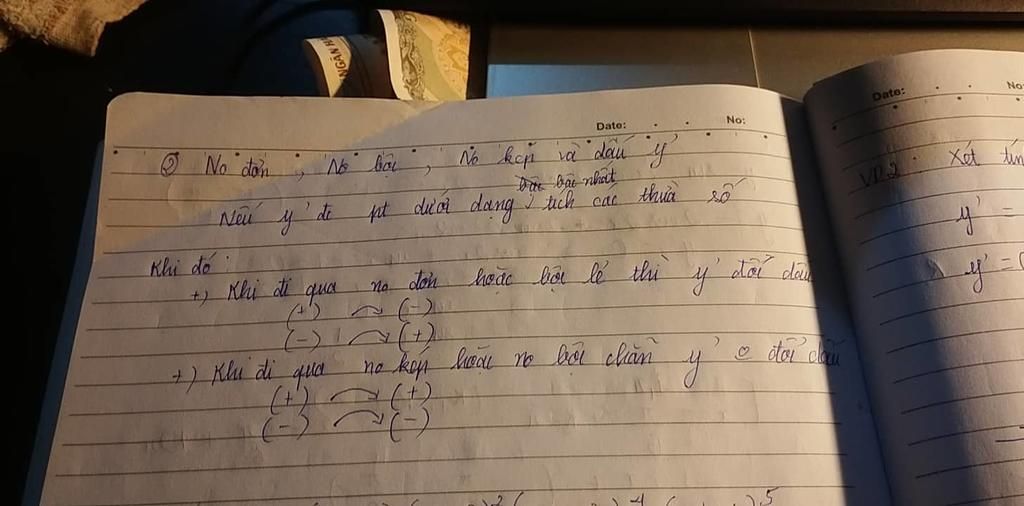 NGÂN HÀ
Date: No:
② No đơn, No bội, No kép và dấu y'
bậc nhất
Nếu y' đc pt dưới dạng tích các thừa số
Khi đó:
+) Khi đi qua no đơn hoặc bội lẻ thì y' đổi dấu
(+) (-)
(-) (+)
+) Khi đi qua no kép hoặc no bội chẵn y' o đổi dấu
(+) (+)
(-) (-)
Date: No:
VD2: Xét tín
y' =
y' =